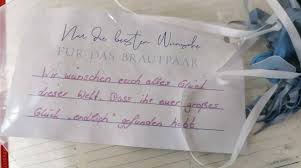 Nur die besten Wünsche
FÜR DAS BRAUTPAAR
Wir wünschen euch alles Glück
dieser Welt. Dass ihr euer großes
Glück „endlich" gefunden habt.